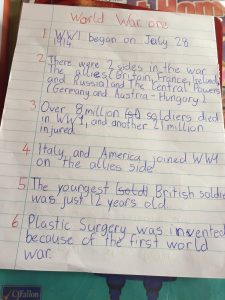 World War one
1 WW1 began on July 28
1914
2 There were 2 sides in the war
The allies (Britain, France, Ireland
and Russia) and The Central Powers
(Germany and Austria - Hungary)
3 Over 8 million soldiers died
in WW1, and another 21 million
injured.
4 Italy and America joined WW1
on the allies side
5 The youngest (sold) British soldier
was just 12 years old
6 Plastic Surgery was invented
because of the first world
war.
CJFallon